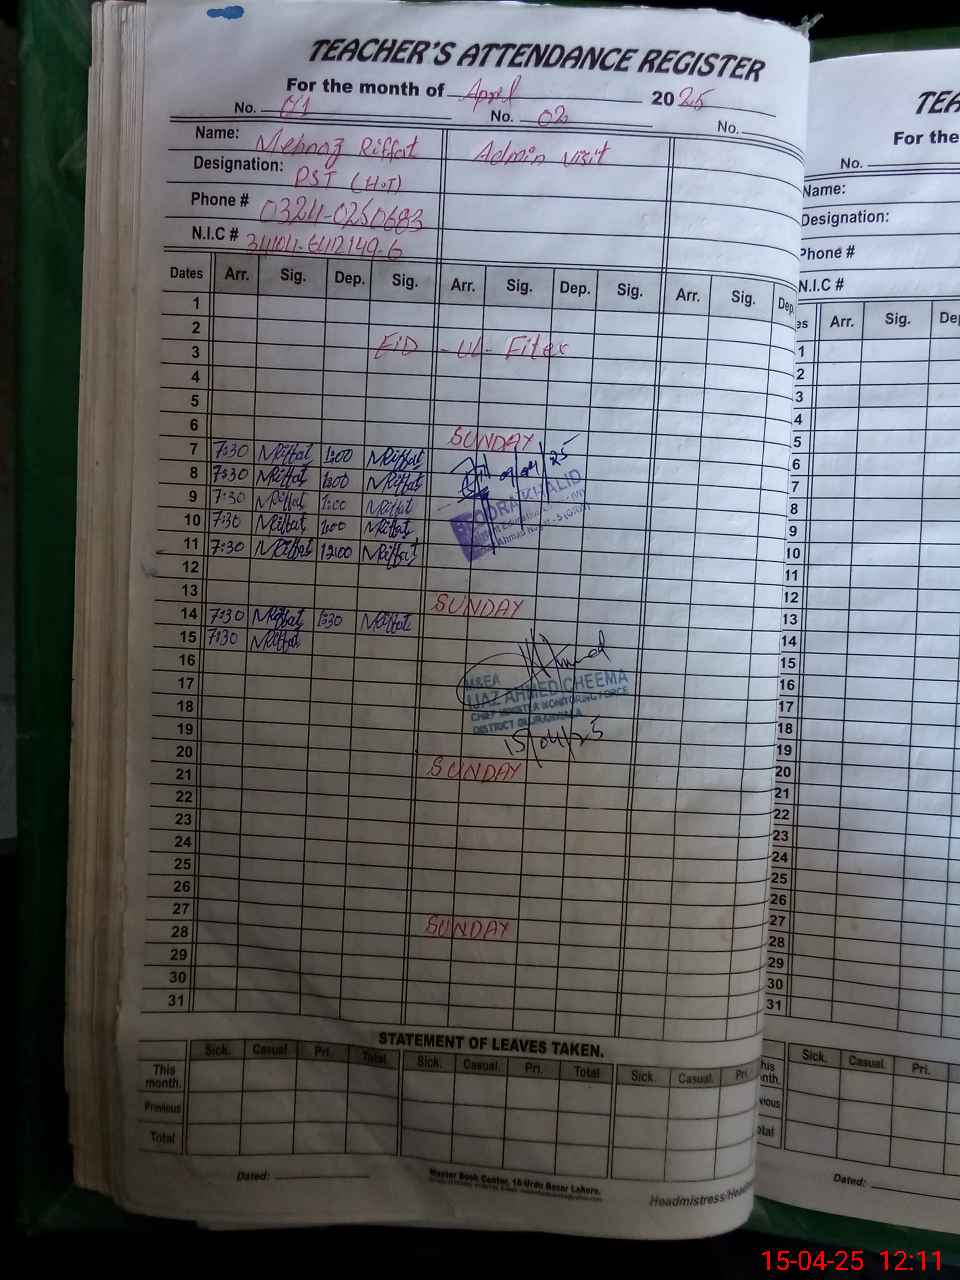 TEACHER'S ATTENDANCE REGISTER
For the month of April 2025
No. 01 No. 02 No.
Name: Mehnaz Riffat Admin Visit
Designation: PST (H.T)
Phone # 0324-0250683
N.I.C # 34104-6412149-6
Dates Arr. Sig. Dep. Sig. Arr. Sig. Dep. Sig. Arr. Sig. Dep.
1
2
3 EiD -Ul- Fiter
4
5
6 SUNDAY
7 7:30 MRiffat 1:00 MRiffat
8 7:30 MRiffat 1:00 MRiffat 09/04/25
9 7:30 MRiffat 1:00 MRiffat KHALID
10 7:30 MRiffat 1:00 MRiffat
11 7:30 MRiffat 12:00 MRiffat
12
13 SUNDAY
14 7:30 MRiffat 1:30 MRiffat
15 7:30 MRiffat
16 Ahmed
17 M&EA
IJAZ AHMED CHEEMA
18 CHIEF MINISTER MONITORING FORCE
19 DISTRICT GUJRANWALA
15/04/25
20 SUNDAY
21
22
23
24
25
26
27 SUNDAY
28
29
30
31
STATEMENT OF LEAVES TAKEN.
Sick. Casual. Pri. Total. Sick. Casual. Pri. Total Sick. Casual. Pri.
This month.
Previous
Total
Dated:
Master Book Center, 16-Urdu Bazar Lahore.
Headmistress/Head
TEA
For the
No.
Name:
Designation:
Phone #
N.I.C #
es Arr. Sig. De
1
2
3
4
5
6
7
8
9
10
11
12
13
14
15
16
17
18
19
20
21
22
23
24
25
26
27
28
29
30
31
Sick. Casual. Pri.
his
nth.
vious
otal
Dated:
15-04-25 12:11